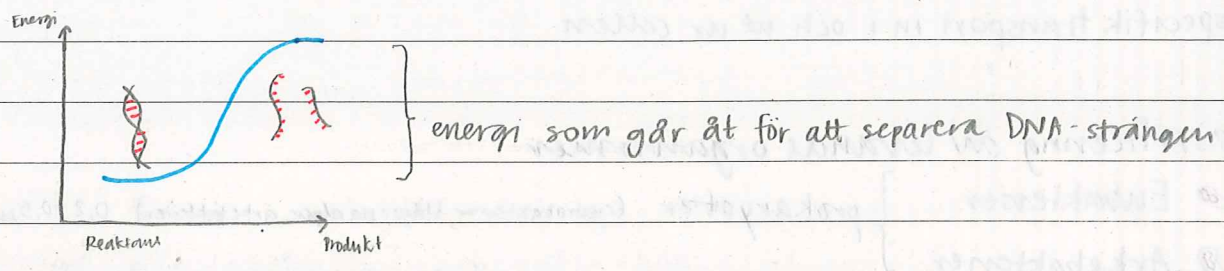 Energi
energi som går åt för att separera DNA-strängen
Reaktans
Produkt